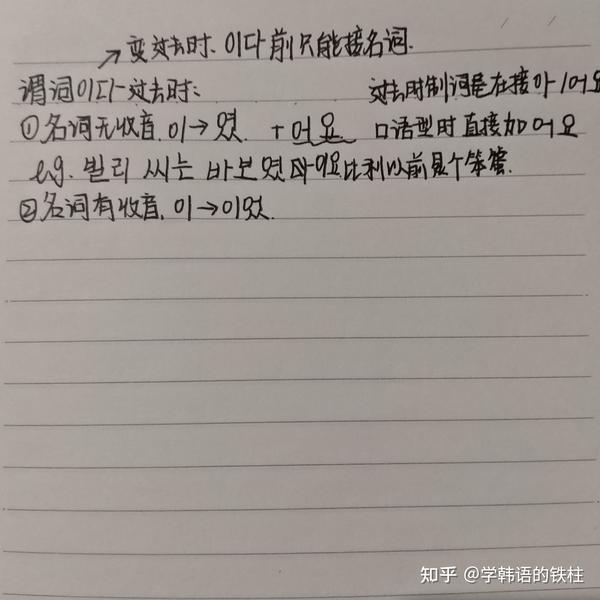 ↗变过去时、이다前只能接名词.
谓词이다-过去时: 过去时制词尾在接아/어요
①名词无收音.이→였 +어요 口语型时直接加어요
e.g. 빌리 씨는 바보였어요.比利以前是个笨蛋.
②名词有收音.이→이었.
知乎 @学韩语的铁柱